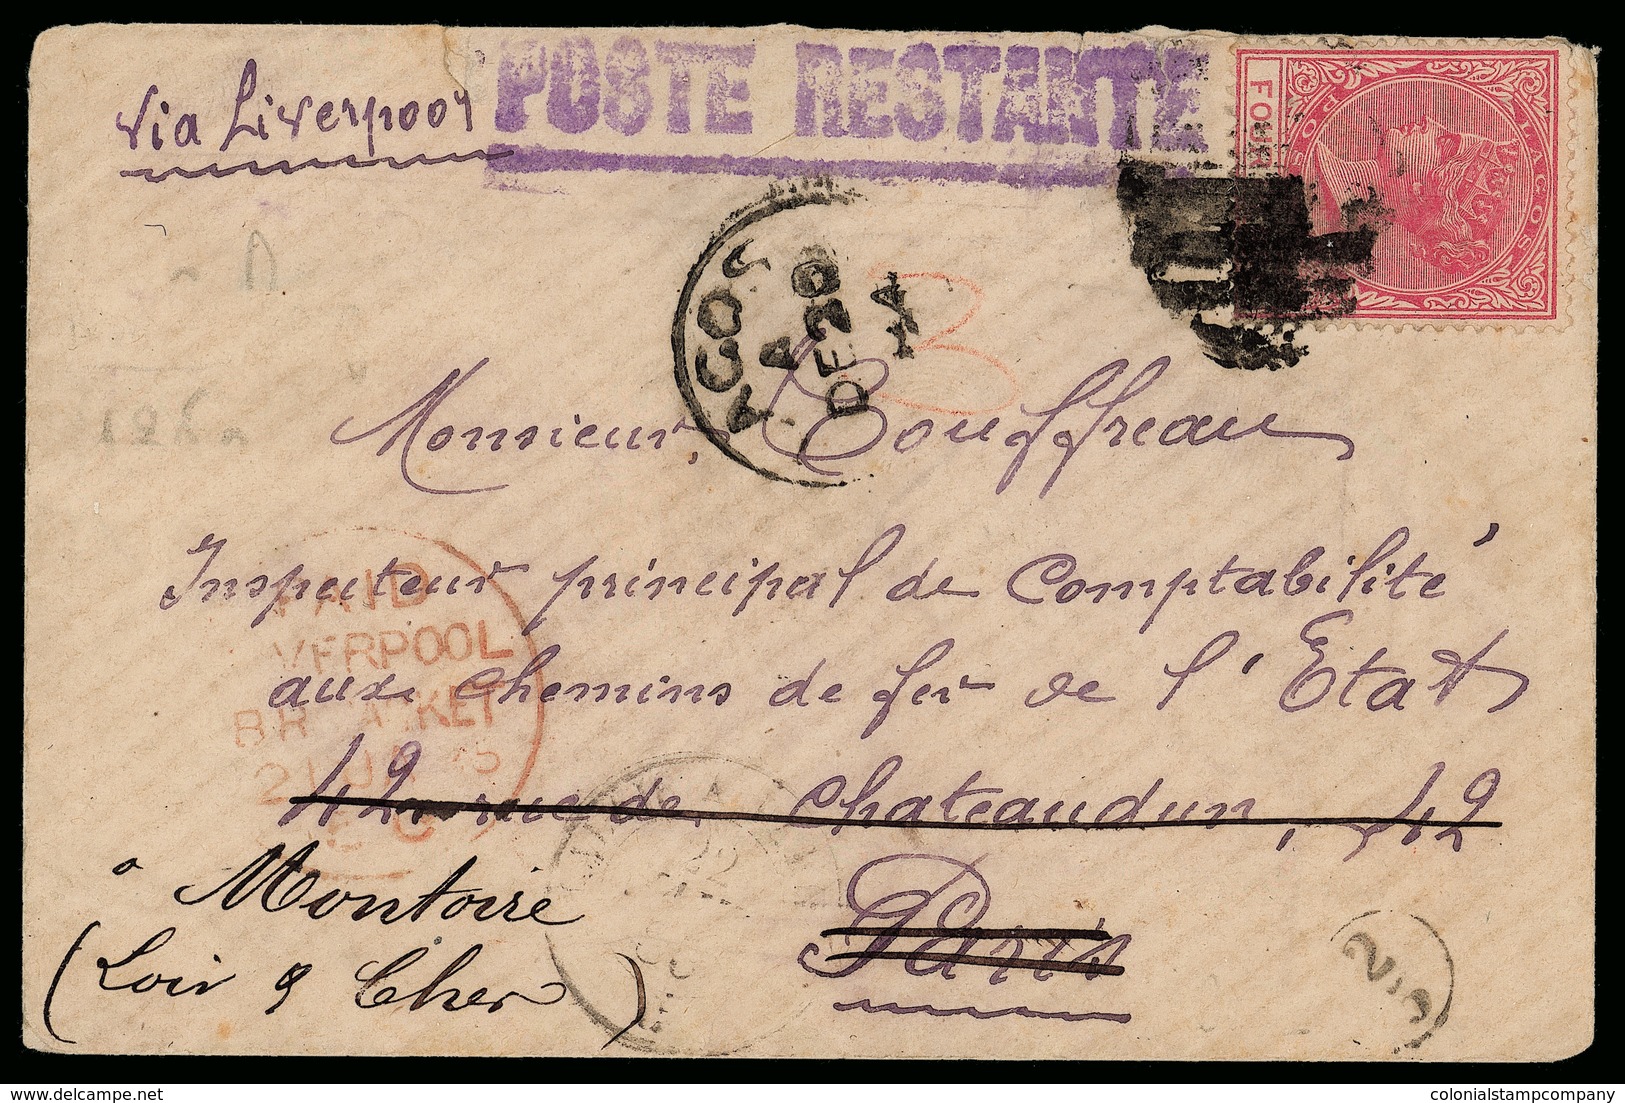 via Liverpool
POSTE RESTANTE
FOUR
LAGOS
A
DE 20
Monsieur Couffreau
Inspecteur principal de Comptabilité
aux chemins de fer de l'Etat
42 rue de Chateaudun, 42
Paris
à Montoire
(Loir & Cher)
PAID
VERPOOL
BR PACKET
21 JA
22
colonialstampcompany